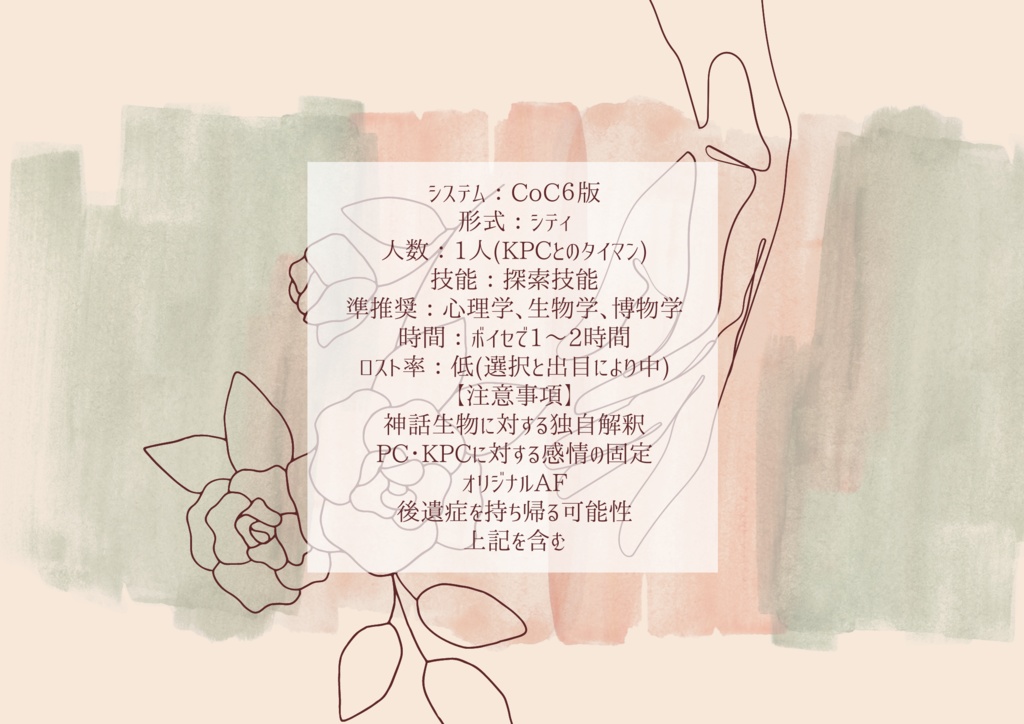 システム：CoC6版
形式：シティ
人数：1人(KPCとのタイマン)
技能：探索技能
準推奨：心理学、生物学、博物学
時間：ボイセで1～2時間
ロスト率：低(選択と出目により中)
【注意事項】
神話生物に対する独自解釈
PC・KPCに対する感情の固定
オリジナルAF
後遺症を持ち帰る可能性
上記を含む